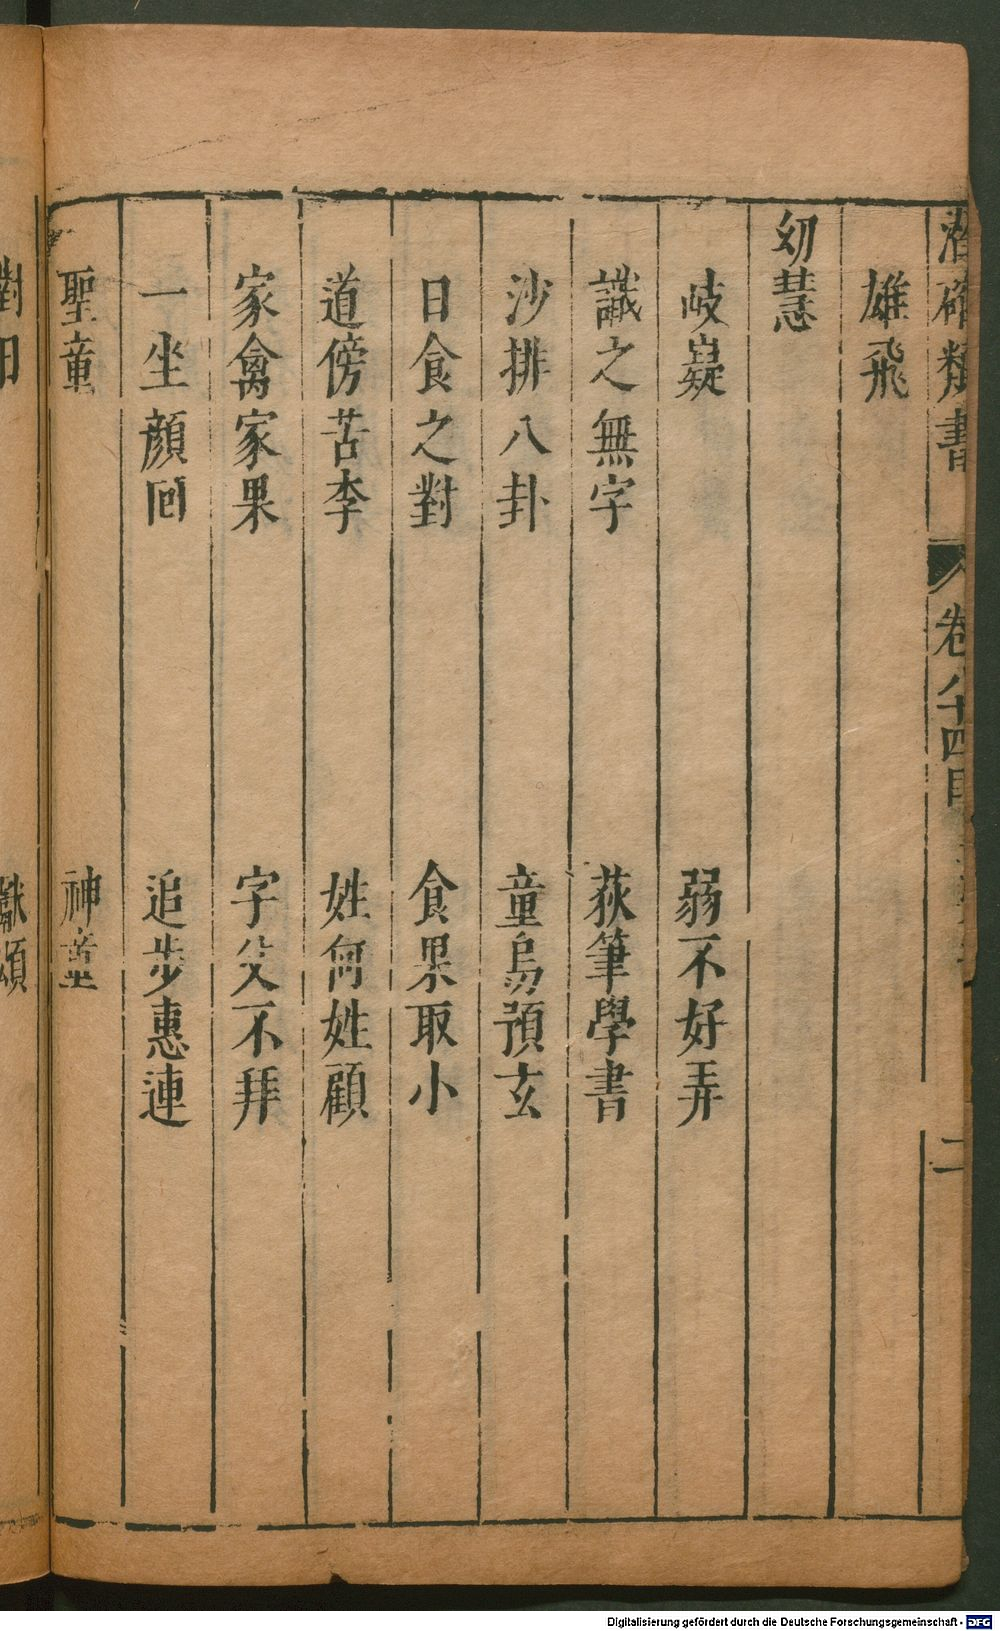 潛確類書 卷八十四目 二
雄飛
幼慧
岐嶷 弱不好弄
識之無字 荻筆學書
沙排八卦 童烏預玄
日食之對 食果取小
道傍苦李 姓何姓顧
家禽家果 字父不拜
一坐顏回 追步惠連
聖童 神童
對日 獻頌
Digitalisierung gefördert durch die Deutsche Forschungsgemeinschaft - DFG